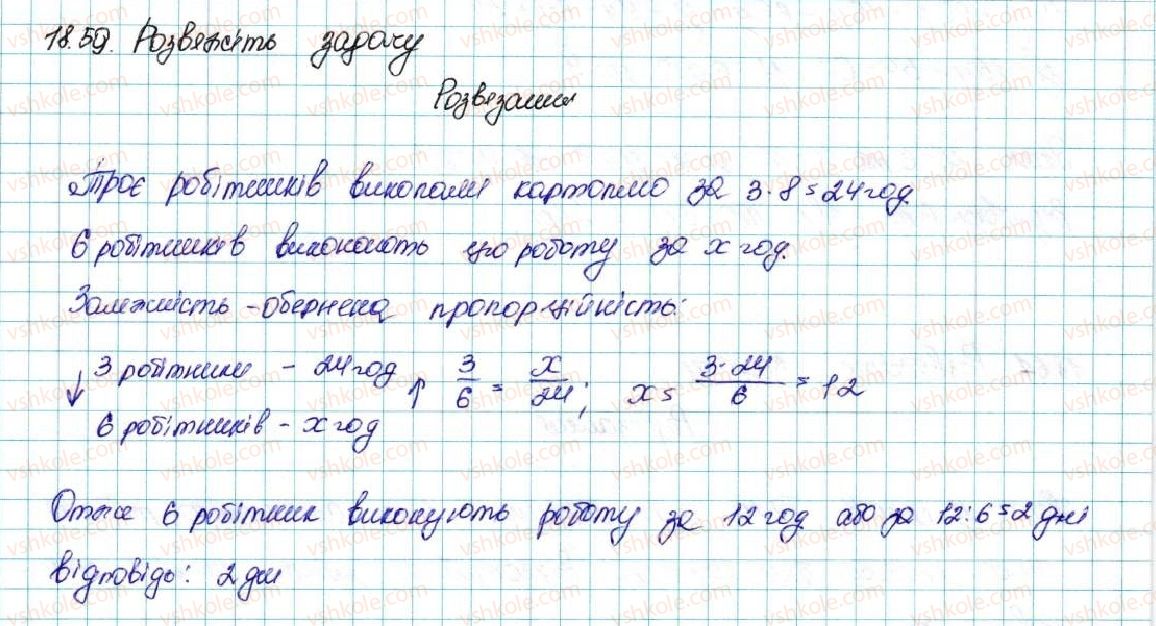 18.59. Розвяжіть задачу
Розвязання
Троє робітників викопали картоплю за 3·8=24 год.
6 робітників виконають цю роботу за x год.
Залежність - обернена пропорційність:
↓ 3 робітники - 24 год ↑ 3/6 = x/24; x = 3·24/6 = 12
6 робітників - x год
Отже 6 робітник виконують роботу за 12 год або за 12:6=2 дні
Відповідь: 2 дні